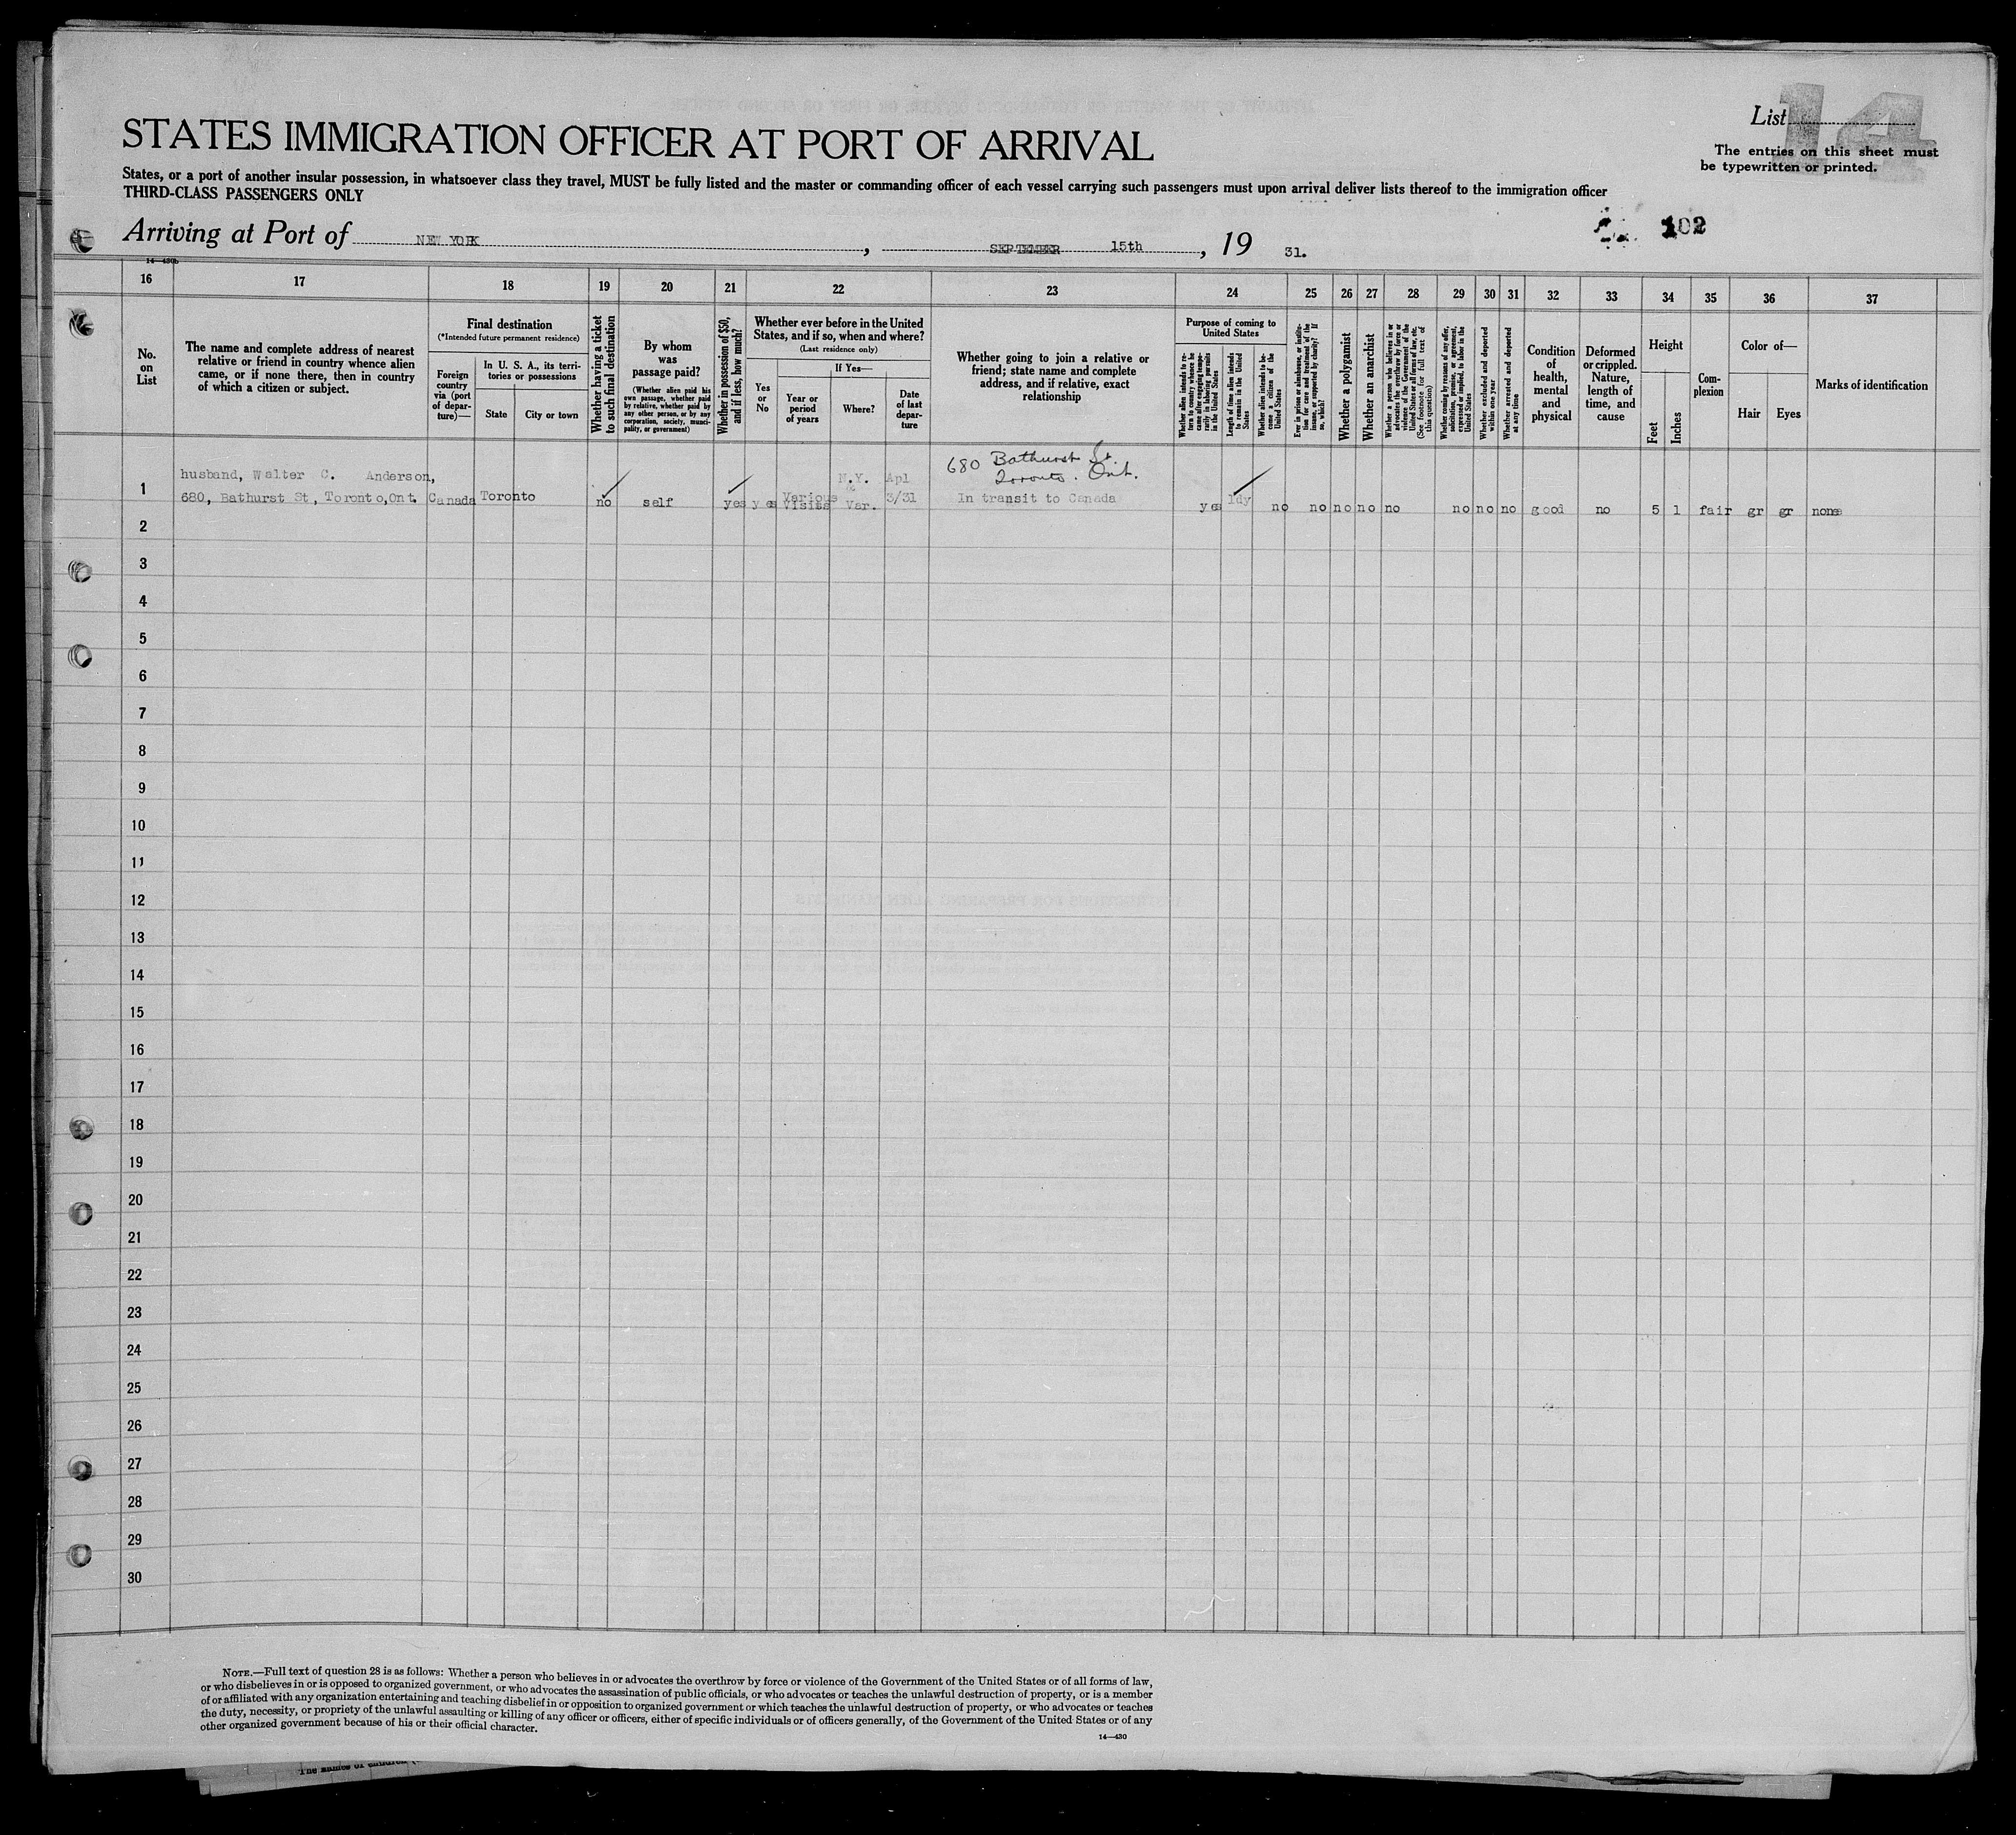 List 14
STATES IMMIGRATION OFFICER AT PORT OF ARRIVAL
The entries on this sheet must
be typewritten or printed.
States, or a port of another insular possession, in whatsoever class they travel, MUST be fully listed and the master or commanding officer of each vessel carrying such passengers must upon arrival deliver lists thereof to the immigration officer
THIRD-CLASS PASSENGERS ONLY
102
Arriving at Port of NEW YORK, SEPTEMBER 15th, 19 31.
14—430b
16 17 18 19 20 21 22 23 24 25 26 27 28 29 30 31 32 33 34 35 36 37
No.
on
List
The name and complete address of nearest
relative or friend in country whence alien
came, or if none there, then in country
of which a citizen or subject.
Final destination
(*Intended future permanent residence)
Foreign
country
via (port
of depar-
ture)—
In U. S. A., its terri-
tories or possessions
State
City or town
Whether having a ticket
to such final destination
By whom
was
passage paid?
(Whether alien paid his
own passage, whether paid
by relative, whether paid by
any other person, or by any
corporation, society, munici-
pality, or government)
Whether in possession of $50,
and if less, how much?
Whether ever before in the United
States, and if so, when and where?
(Last residence only)
Yes
or
No
If Yes—
Year or
period
of years
Where?
Date
of last
depar-
ture
Whether going to join a relative or
friend; state name and complete
address, and if relative, exact
relationship
Purpose of coming to
United States
Whether alien intends to re-
turn to country whence he
came after engaging tempo-
rarily in laboring pursuits
in the United States
Length of time alien intends
to remain in the United
States
Whether alien intends to be-
come a citizen of the
United States
Ever in prison or almshouse, or institu-
tion for care and treatment of the
insane, or supported by charity? If
so, which?
Whether a polygamist
Whether an anarchist
Whether a person who believes in or
advocates the overthrow by force or
violence of the Government of the
United States or all forms of law, etc.
(See footnote for full text of
this question)
Whether coming by reason of any offer,
solicitation, promise, or agreement,
expressed or implied, to labor in the
United States
Whether excluded and deported
within one year
Whether arrested and deported
at any time
Condition
of
health,
mental
and
physical
Deformed
or crippled.
Nature,
length of
time, and
cause
Height
Feet
Inches
Com-
plexion
Color of—
Hair
Eyes
Marks of identification
680 Bathurst St
Toronto. Ont.
husband, Walter C. Anderson, N.Y. Apl
1 680, Bathurst St, Toronto,Ont. Canada Toronto no self yes yes Various & 3/31 In transit to Canada
Visits Var. yes 1dy no no no no no no no no good no 5 1 fair gr gr none
2
3
4
5
6
7
8
9
10
11
12
13
14
15
16
17
18
19
20
21
22
23
24
25
26
27
28
29
30
NOTE.—Full text of question 28 is as follows: Whether a person who believes in or advocates the overthrow by force or violence of the Government of the United States or of all forms of law,
or who disbelieves in or is opposed to organized government, or who advocates the assassination of public officials, or who advocates or teaches the unlawful destruction of property, or is a member
of or affiliated with any organization entertaining and teaching disbelief in or opposition to organized government or which teaches the unlawful destruction of property, or who advocates or teaches
the duty, necessity, or propriety of the unlawful assaulting or killing of any officer or officers, either of specific individuals or of officers generally, of the Government of the United States or of any
other organized government because of his or their official character.
14—430